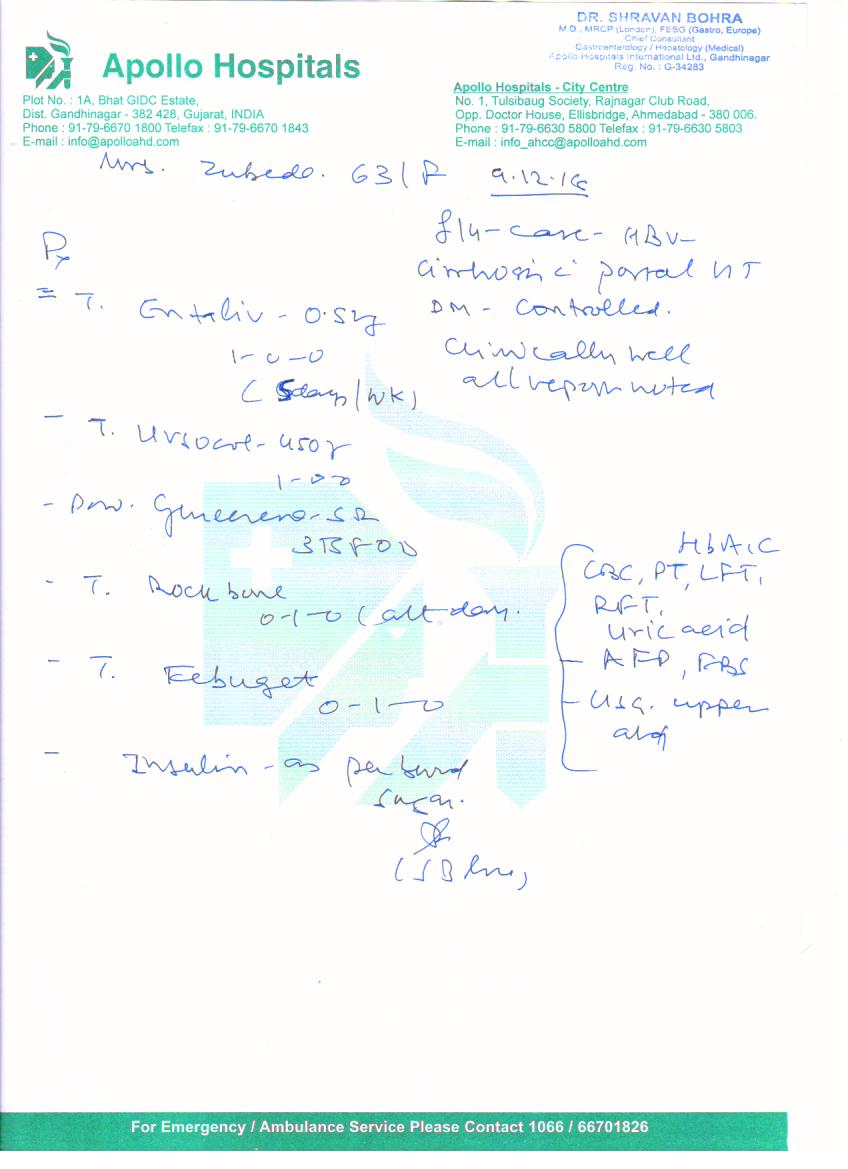 DR. SHRAVAN BOHRA
M.D., MRCP (London), FEBG (Gastro, Europe)
Chief Consultant
Gastroenterology / Hepatology (Medical)
Apollo Hospitals International Ltd., Gandhinagar
Reg. No. : G-34283
Apollo Hospitals
Plot No. : 1A, Bhat GIDC Estate,
Dist. Gandhinagar - 382 428, Gujarat, INDIA
Phone : 91-79-6670 1800 Telefax : 91-79-6670 1843
E-mail : info@apolloahd.com
Apollo Hospitals - City Centre
No. 1, Tulsibaug Society, Rajnagar Club Road,
Opp. Doctor House, Ellisbridge, Ahmedabad - 380 006.
Phone : 91-79-6630 5800 Telefax : 91-79-6630 5803
E-mail : info_ahcc@apolloahd.com
Mrs. 63/F 9.12.16
f/u - case - HBV -
cirrhosis c portal HT
DM - controlled.
Clinically well
all report noted
Rx
- T. Entaliv - 0.5
1-0-0
(5days/wk)
- T. Ursocol - 450
1-0-0
- Pow.
3TSF OD
- T. Rock bone
0-1-0 (alt day.
- T. Febuget
0-1-0
- Insulin - as per
sugar.
HbA1C
CBC, PT, LFT,
RFT,
Uric acid
- AFP, FBS
- USG. upper
abd
For Emergency / Ambulance Service Please Contact 1066 / 66701826